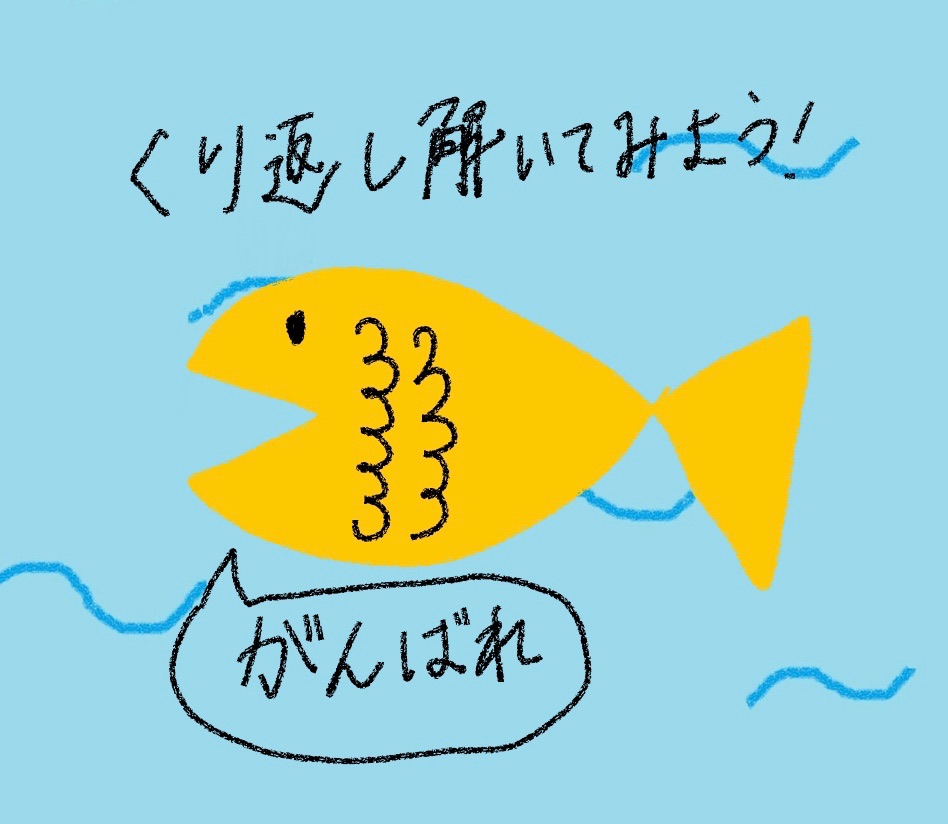 くり返し解いてみよう!
がんばれ